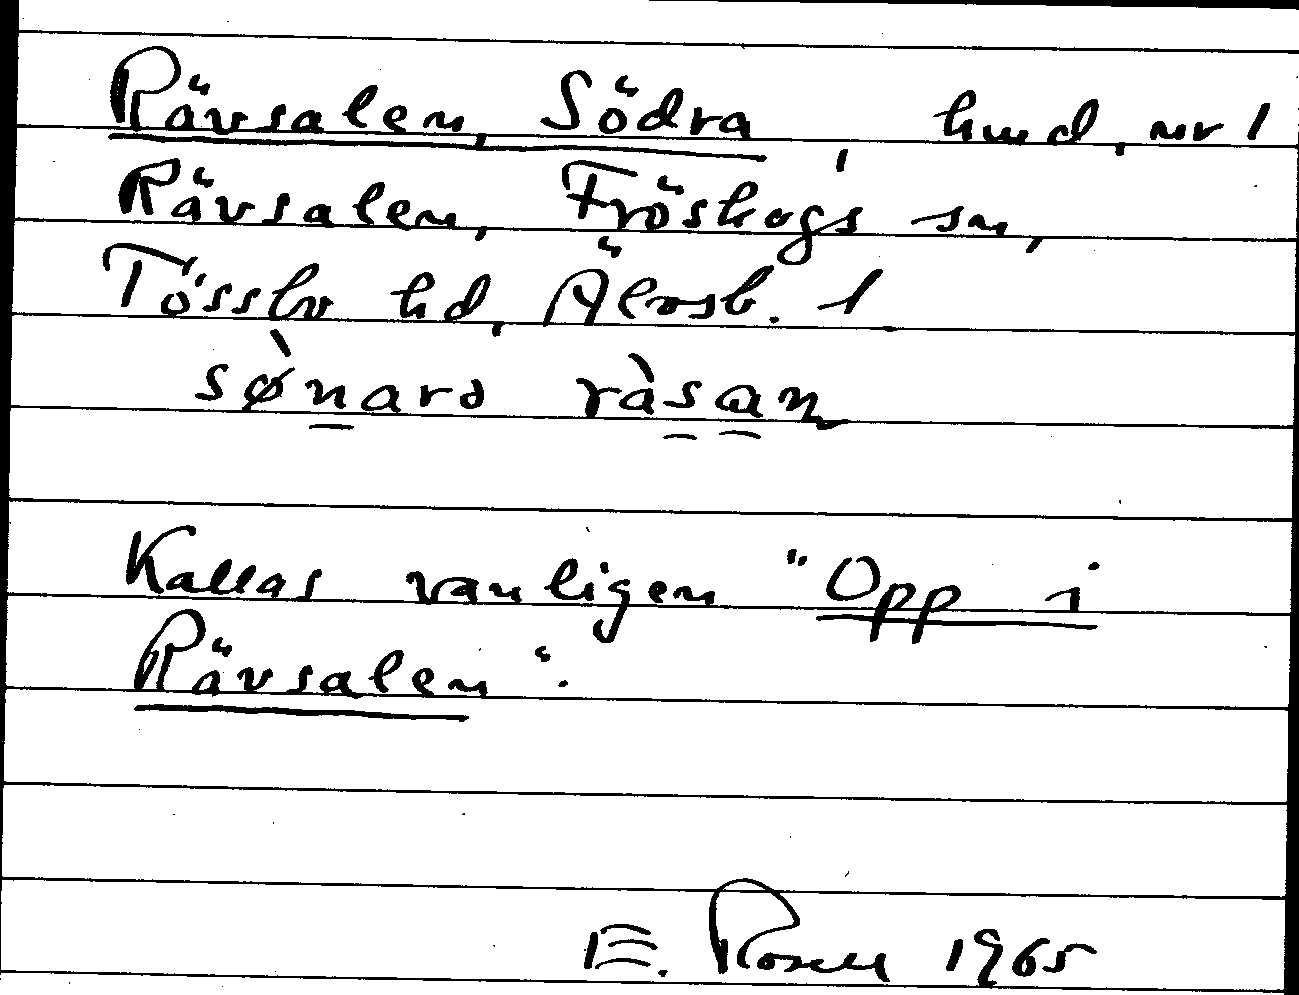 Rävsalen, Södra, hmd, nr 1
Rävsalen, Fröskogs sn,
Tössbo hd, Älvsb. l
sø̀narə ràsan
Kallas vanligen "Opp i
Rävsalen".
E. Rosell 1965